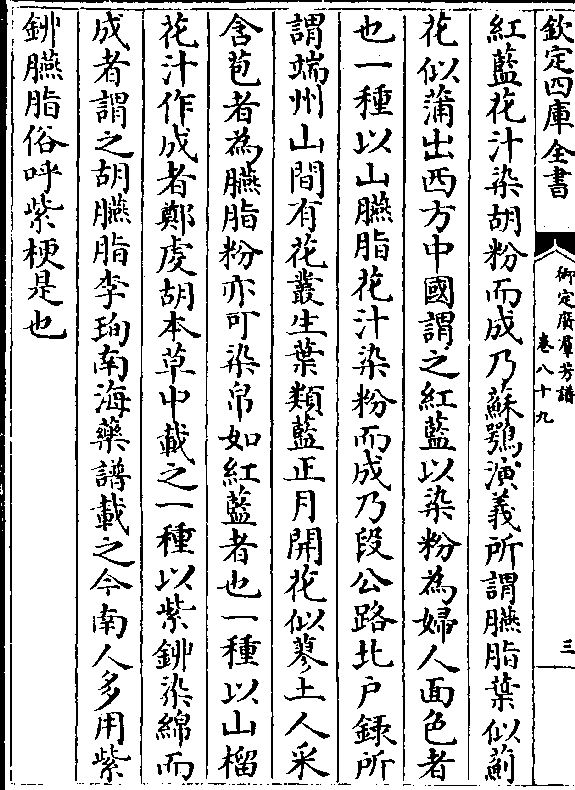 欽定四庫全書
御定廣羣芳譜
卷八十九
三
紅藍花汁染胡粉而成乃蘇鶚演義所謂臙脂葉似薊
花似蒲出西方中國謂之紅藍以染粉為婦人面色者
也一種以山臙脂花汁染粉而成乃段公路北户録所
謂端州山間有花叢生葉類藍正月開花似蓼土人采
含苞者為臙脂粉亦可染帛如紅藍者也一種以山榴
花汁作成者鄭䖍胡本草中載之一種以紫鉚染綿而
成者謂之胡臙脂李珣南海藥譜載之今南人多用紫
鉚臙脂俗呼紫梗是也